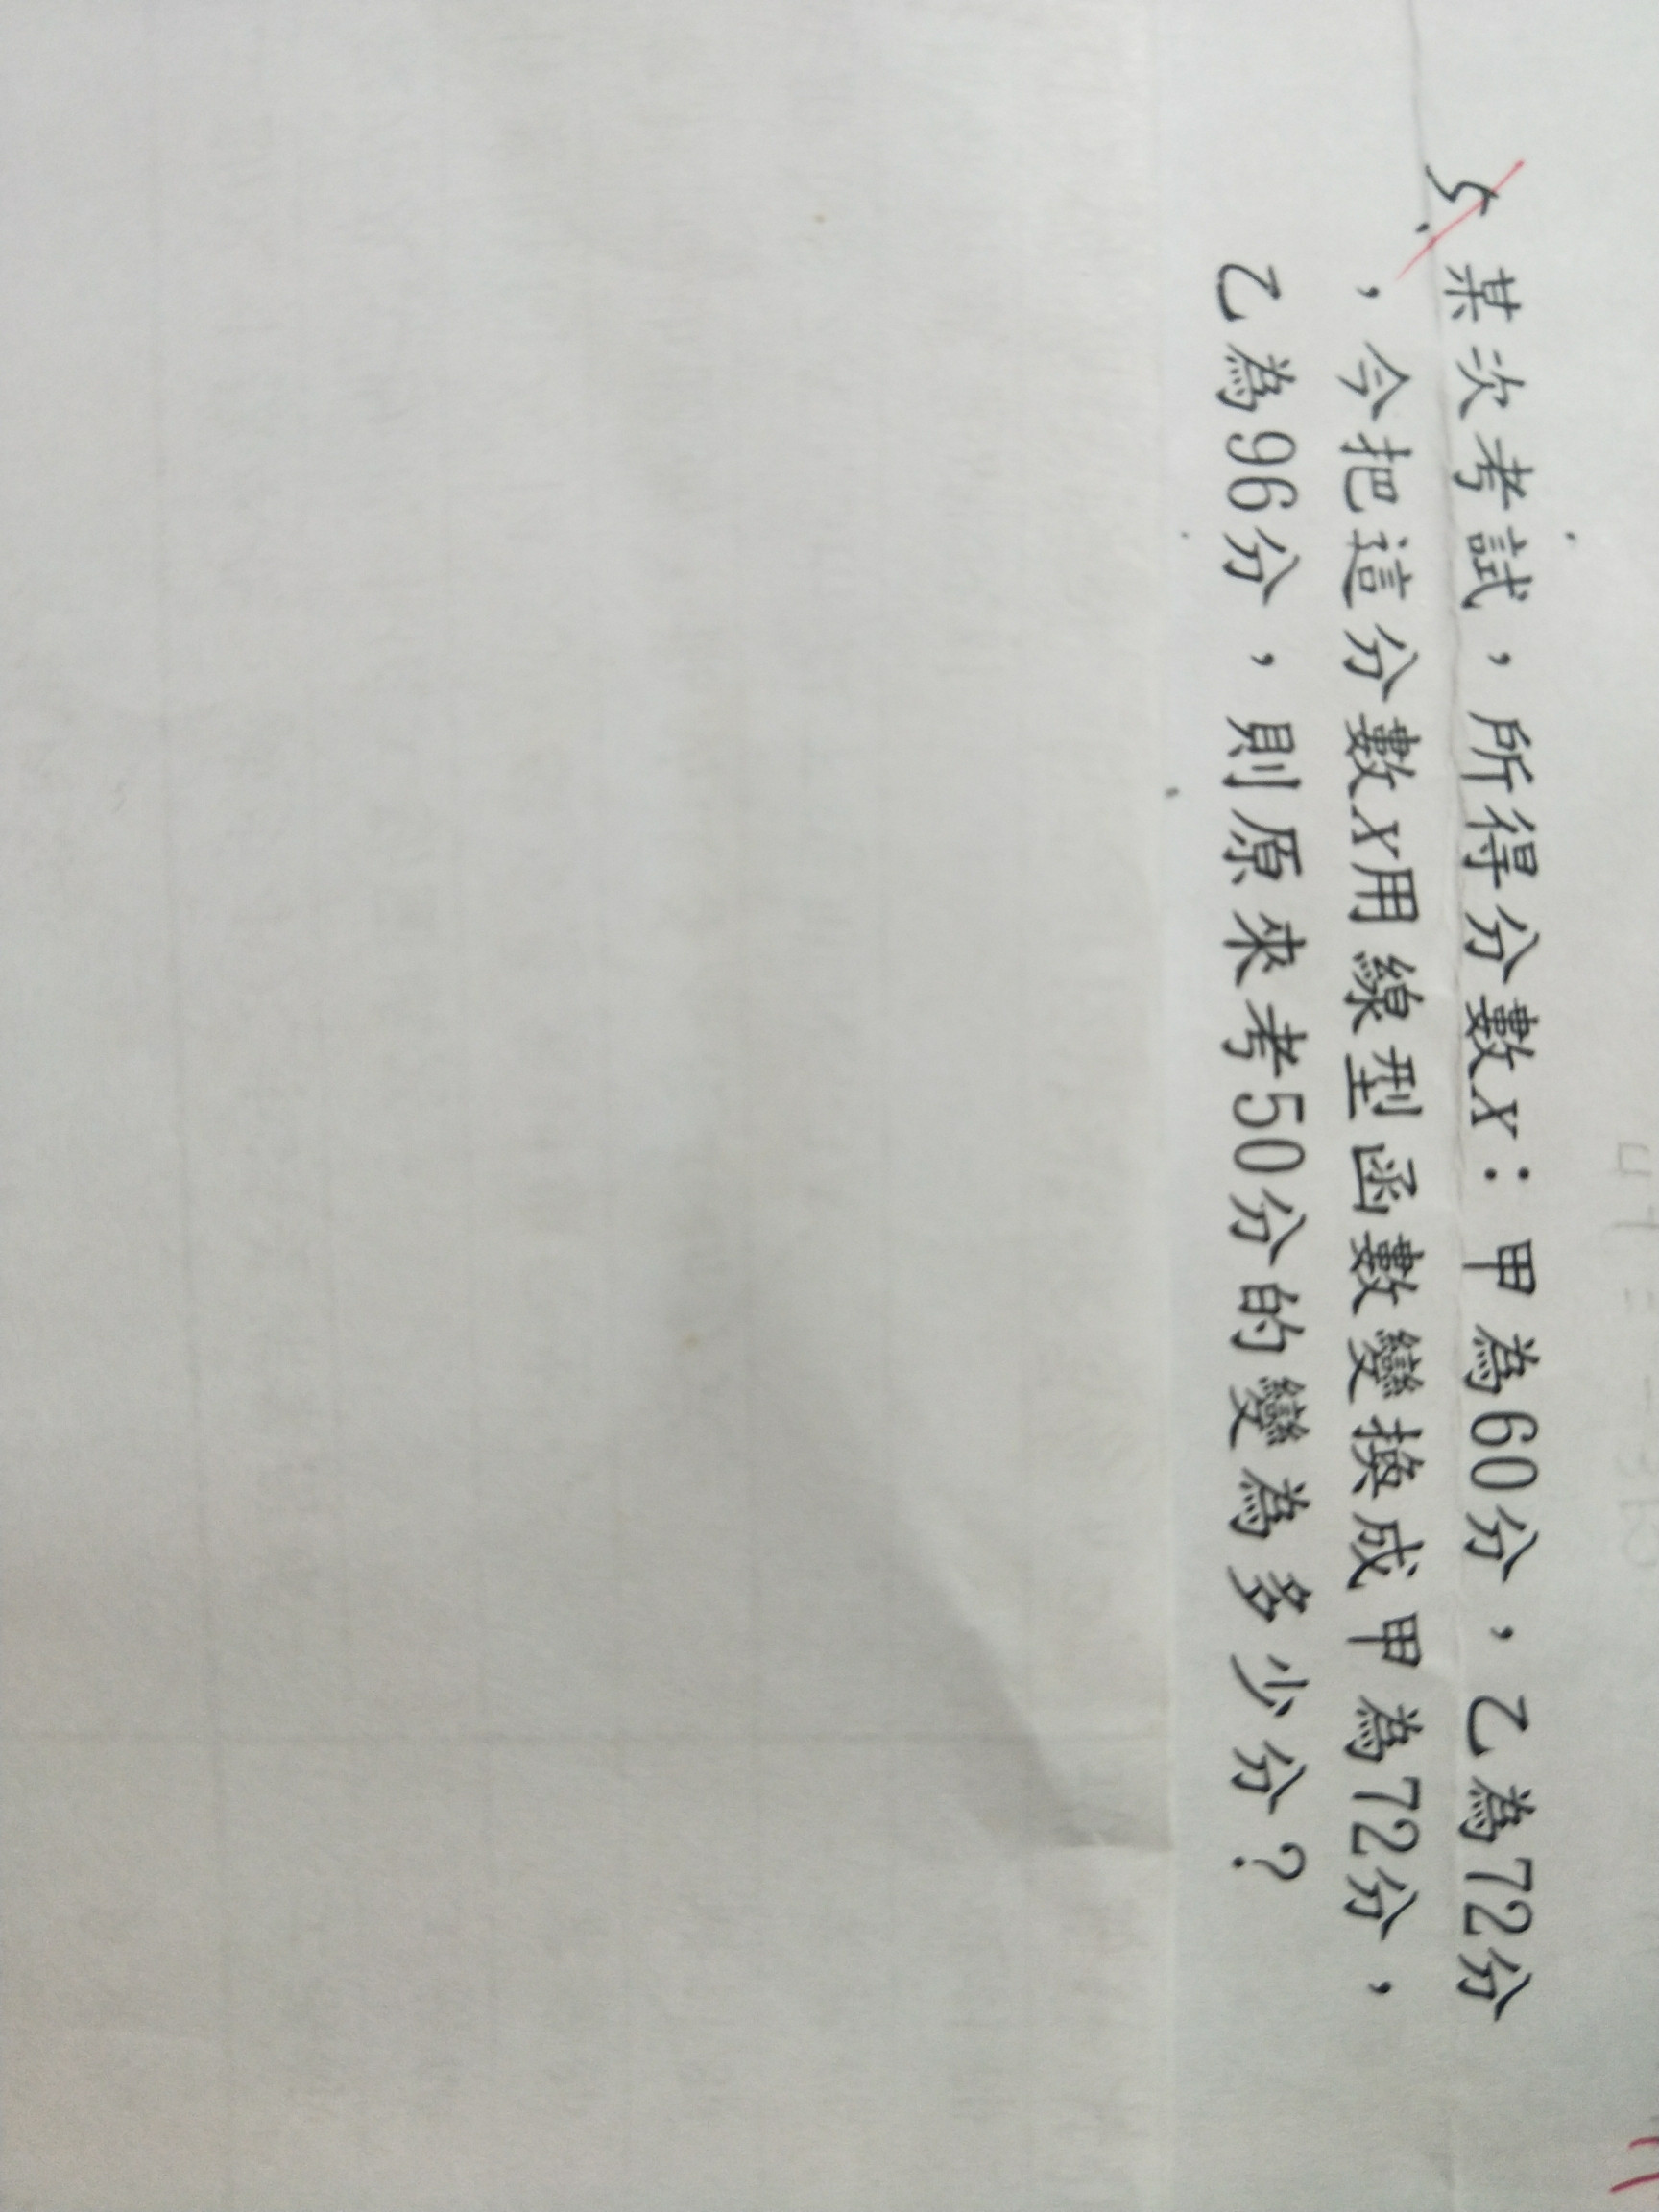 5. 某次考試，所得分數x：甲為60分，乙為72分
，今把這分數x用線型函數變換成甲為72分，
乙為96分，則原來考50分的變為多少分？